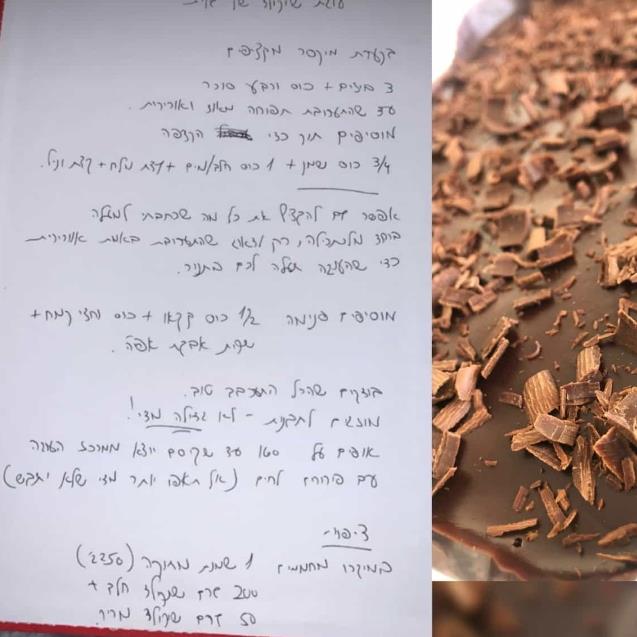 עוגת שוקולד של
בקערת מיקסר מקציפים
3 ביצים + כוס ורבע סוכר
עד שהתערובת תפוחה מאוד ואוורירית.
מוסיפים תוך כדי הקצפה
3/4 כוס שמן + 1 כוס חלב/מים + קצת מלח + קצת וניל.
אפשר גם להקציף את כל מה שכתבתי למעלה
ביחד מלכתחילה, רק לדאוג שהתערובת באמת אוורירית
כדי שהעוגה תעלה לכם בתנור.
מוסיפים פנימה 1/2 כוס קקאו + כוס וחצי קמח +
שקית אבקת אפיה.
בודקים שהכל התערבב טוב.
מוזגים לתבנית - לא גדולה מדי!
אופים על 160 עד שקיסם יוצא ממרכז העוגה
עם פירורים לחים (אל תאפו יותר מדי שלא יתייבש)
ציפוי-
במיקרו מחממים 1 שמנת מתוקה (250)
200 גרם שוקולד חלב +
50 גרם שוקולד מריר.